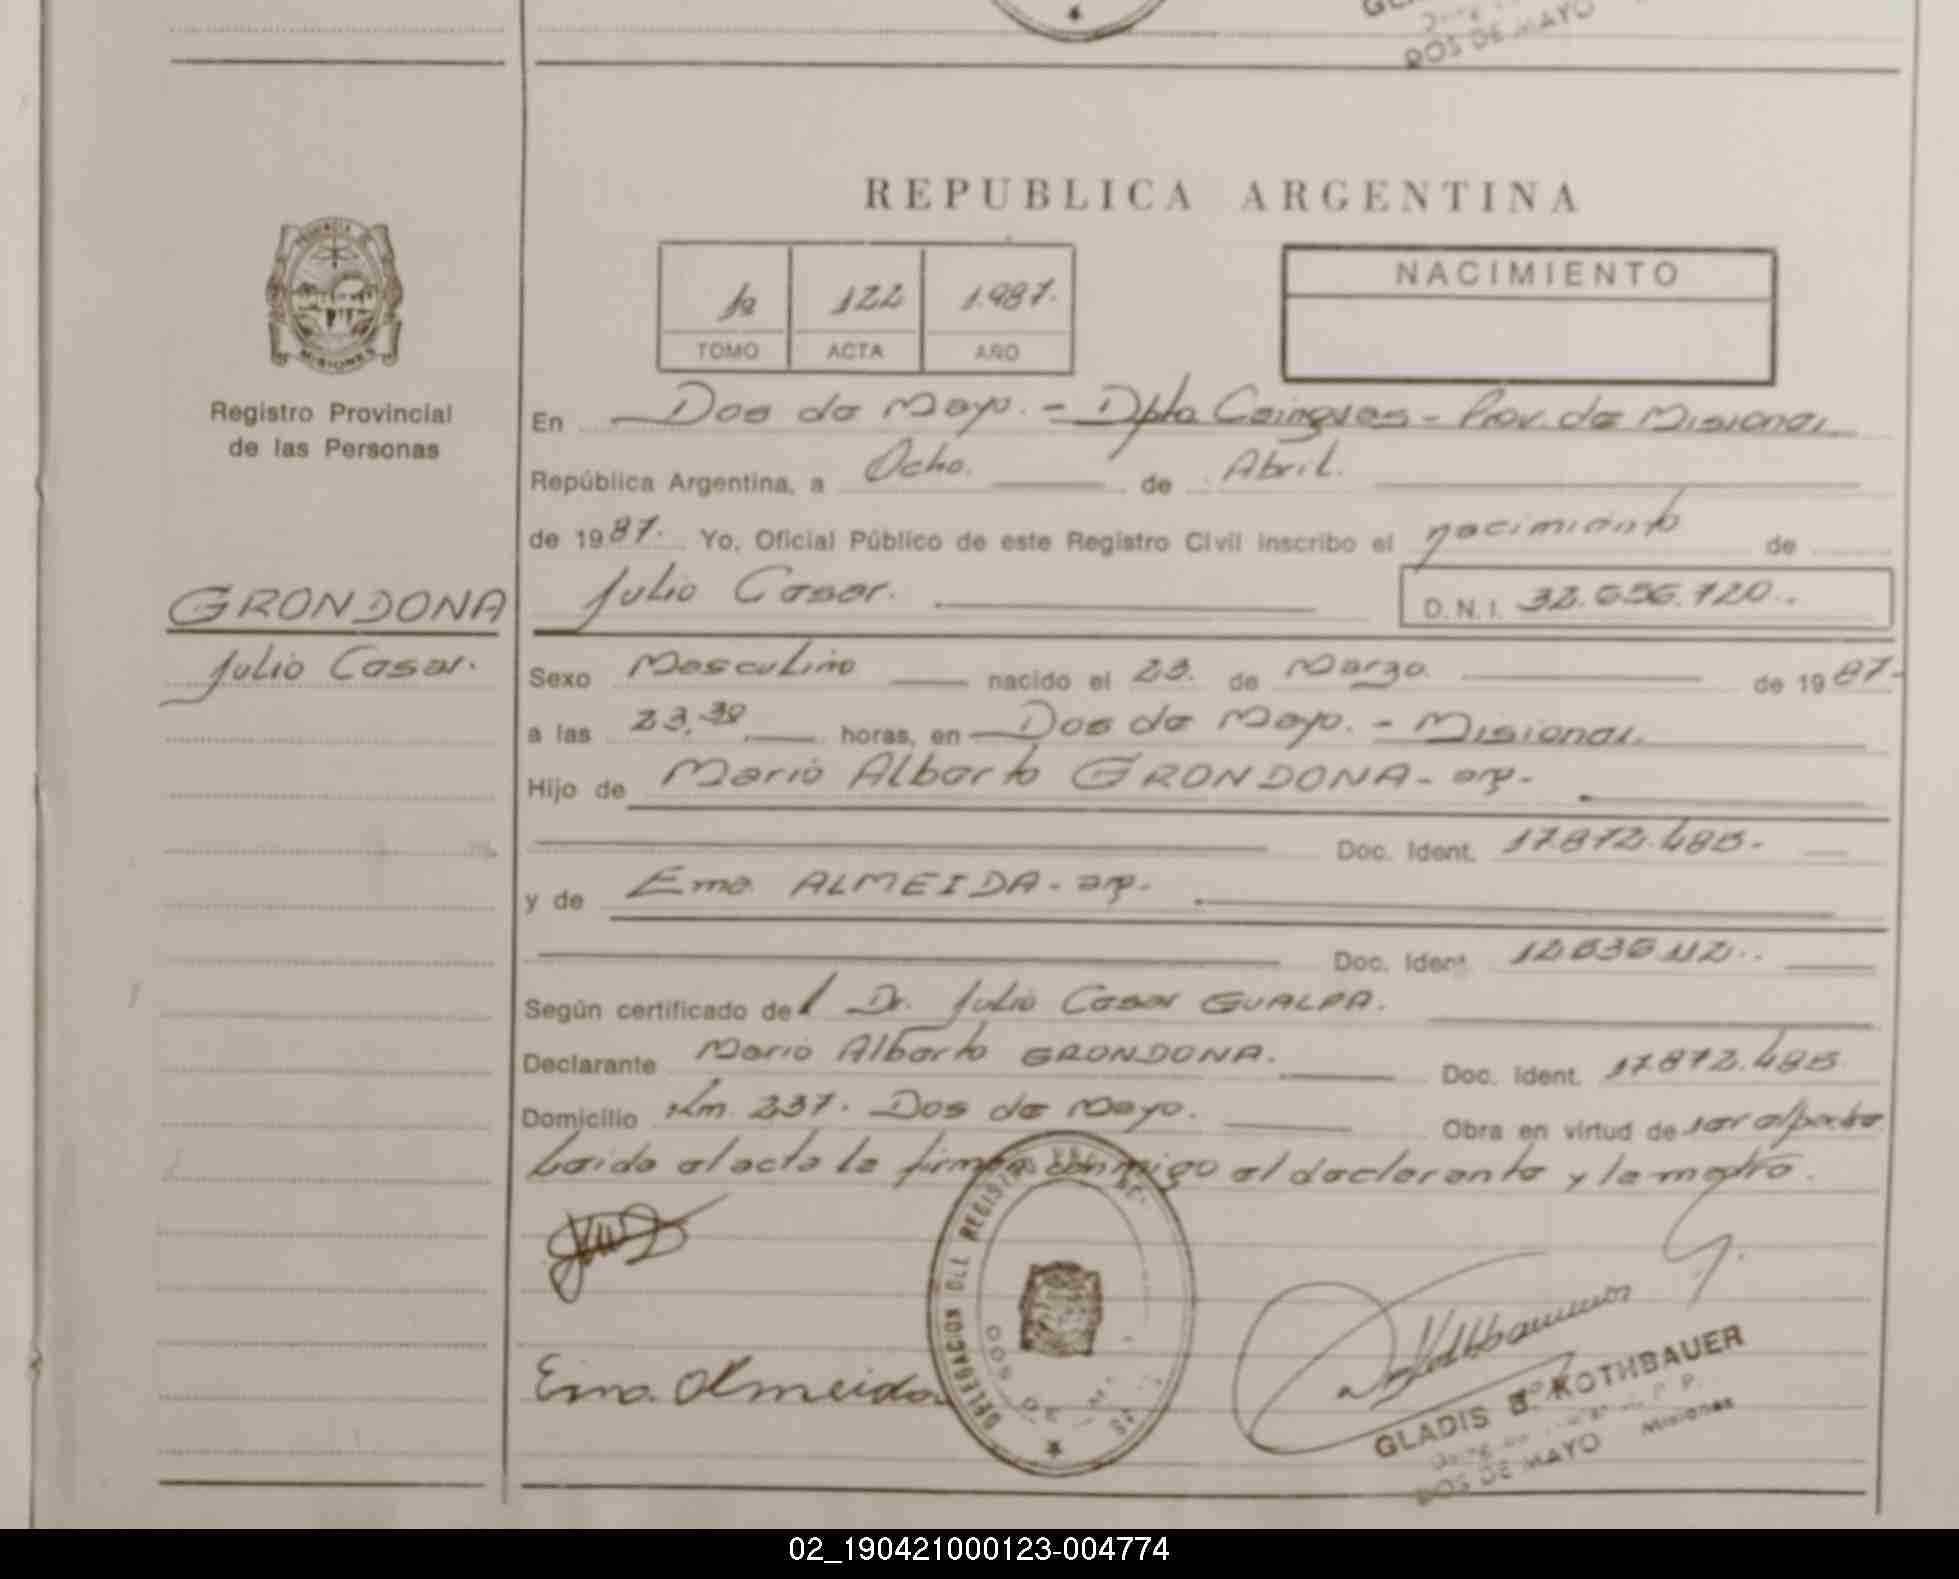 DOS DE MAYO
REPUBLICA ARGENTINA
PROVINCIA DE
MISIONES
Registro Provincial
de las Personas
1º 122 1.987.
TOMO ACTA AÑO
NACIMIENTO
En Dos de Mayo. - Dpto Cainguas - Prov. de Misiones
República Argentina, a Ocho. de Abril.
de 1987. Yo, Oficial Público de este Registro Civil inscribo el nacimiento de
GRONDONA
Julio Cesar.
Julio Cesar. D.N.I. 32.656.720..
Sexo Masculino nacido el 23. de Marzo. de 1987-
a las 23,30 horas, en Dos de Mayo. - Misiones.
Hijo de Mario Alberto GRONDONA - arg-
Doc. Ident. 17.872.485-
y de Ema ALMEIDA - arg-
Doc. Ident. 12.636.112..
Según certificado del Dr. Julio Cesar GUALPA.
Declarante Mario Alberto GRONDONA. Doc. Ident. 17.872.485
Domicilio Km. 237. Dos de Mayo. Obra en virtud de ser el padre
Leida el acta la firman conmigo el declarante y la madre.
Ema. Almeida.
DELEGACION DEL REGISTRO
DOS DE
GLADIS KOTHBAUER
DOS DE MAYO Misiones
02_190421000123-004774